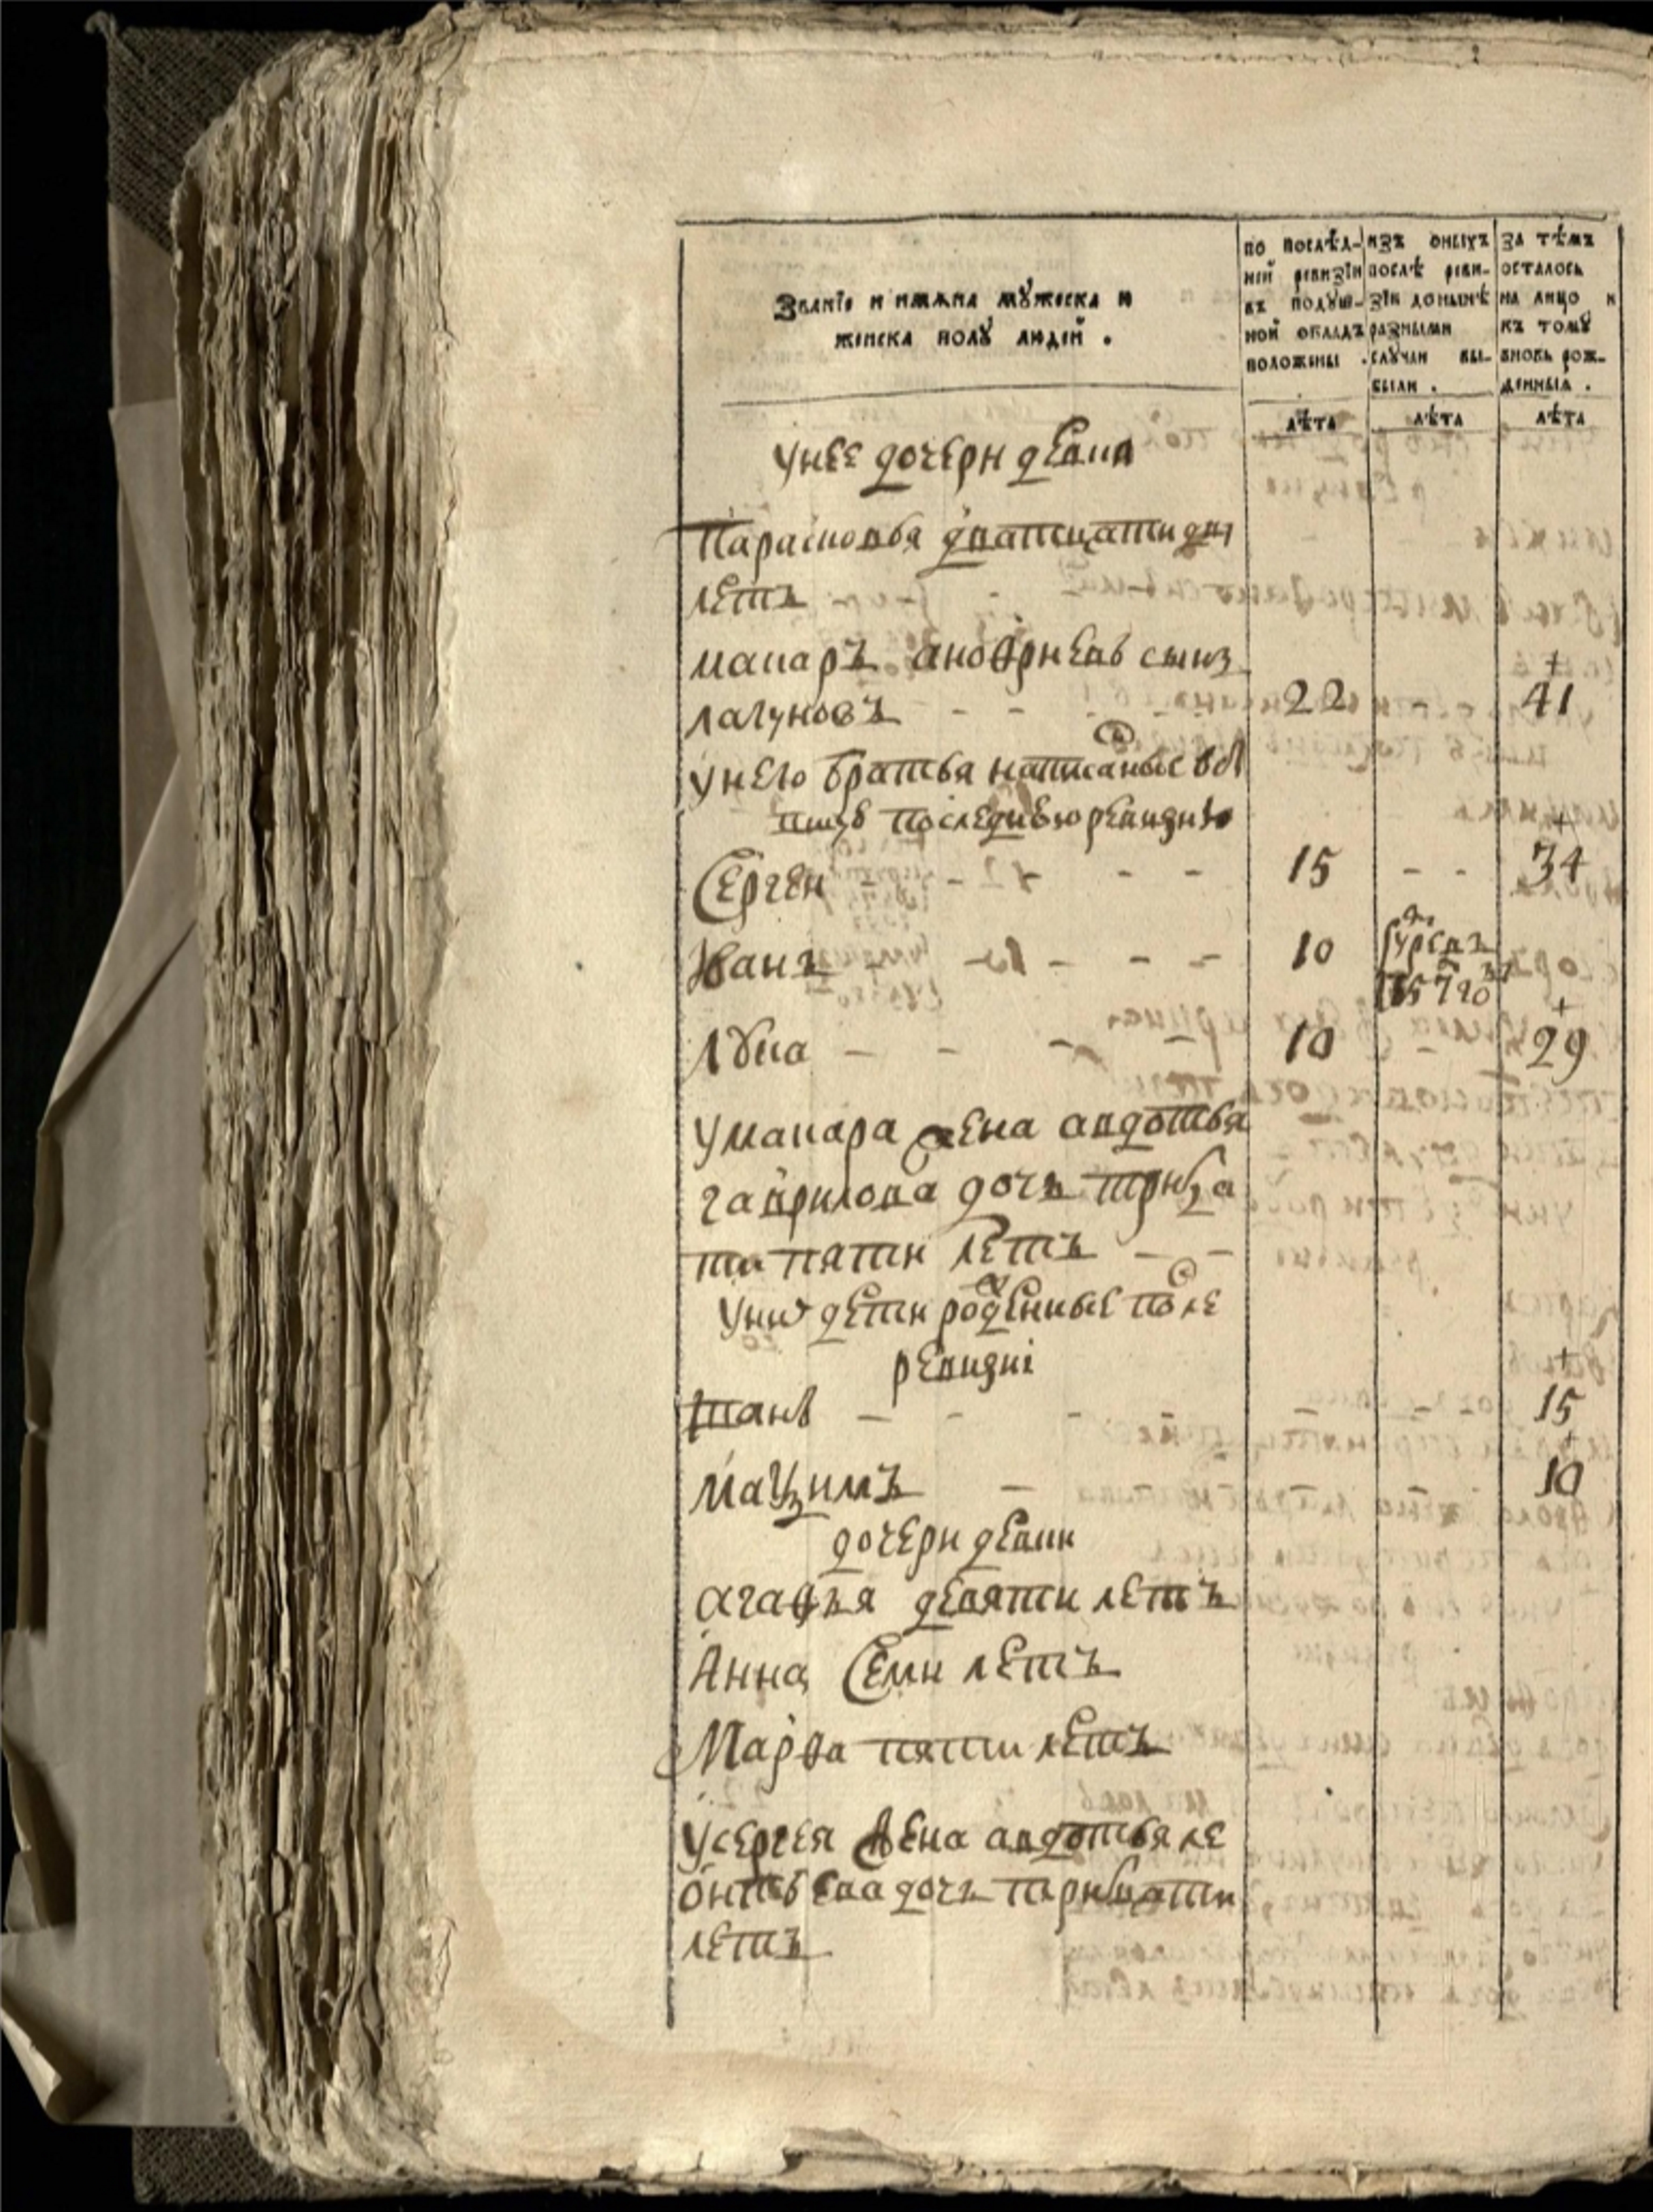 Званїе и имяна мꙋжеска и
женска полꙋ людей .
по послѣд-
ней ревизїи
въ подꙋш-
ной окладъ
положены .
изъ оныхъ
послѣ реви-
зїи донынѣ
разными
слꙋчаи вы-
были .
за тѣмъ
осталось
на лицо и
къ томꙋ
вновь рож-
денныя .
лѣта лѣта лѣта
унее дочери девки
Парасковья дватцати дву
летъ
макаръ аноѳриевъ сынъ
лагуновъ - - - 22 - 41
унего братья написаные въ
последнюю ревизию
Сергеи - - - - 15 - - 34
Иванъ - - - - 10
Лука - - - - 10 - 29
умакара жена авдотья
гаврилова дочь трица
ти пяти летъ - -
уних дети рожденные после
ревизиі
- - - - 15
Маѯимъ - 10
дочери девки
агаѳья девяти летъ
Анна Семи летъ
Марѳа пяти летъ
усергея жена авдотья ле
онтьева дочь трицати
летъ